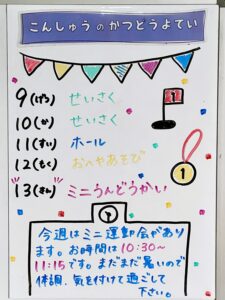 こんしゅうのかつどうよてい
9(げつ) せいさく
10(か) せいさく
11(すい) ホール
12(もく) おへやあそび
13(きん) ミニうんどうかい
1
1
今週はミニ運動会があり
ます。お時間は10:30~
11:15です。まだまだ暑いので
体調、気を付けて過ごして
下さい。